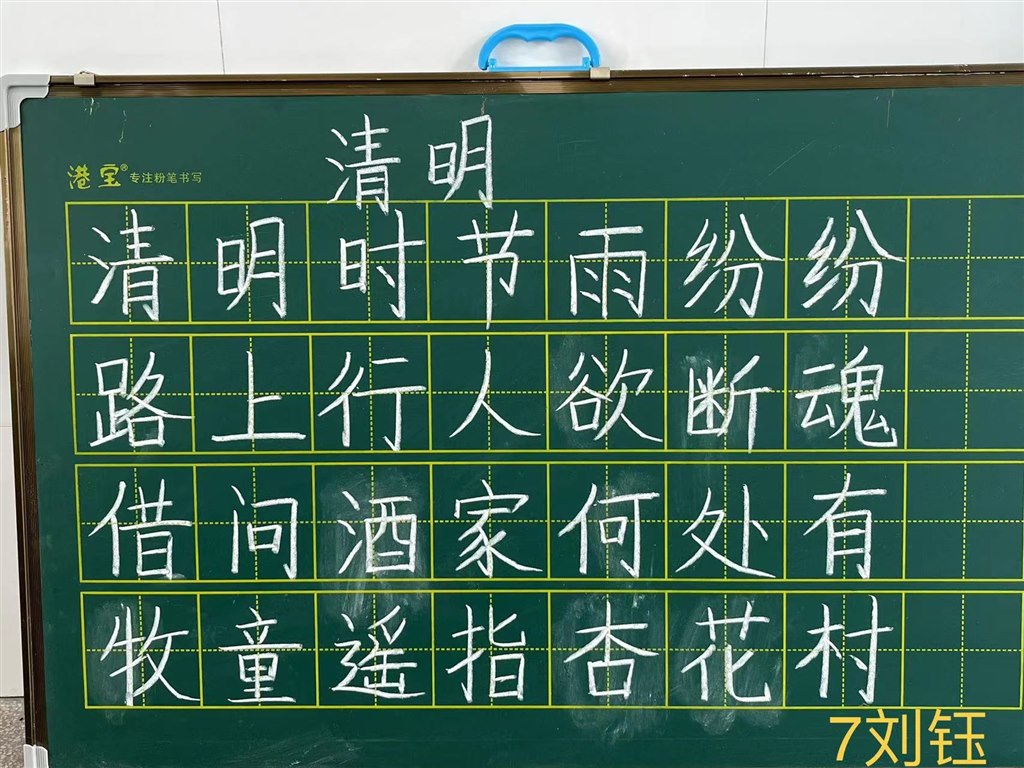 清明
港宝®专注粉笔书写
清明时节雨纷纷
路上行人欲断魂
借问酒家何处有
牧童遥指杏花村
7刘钰